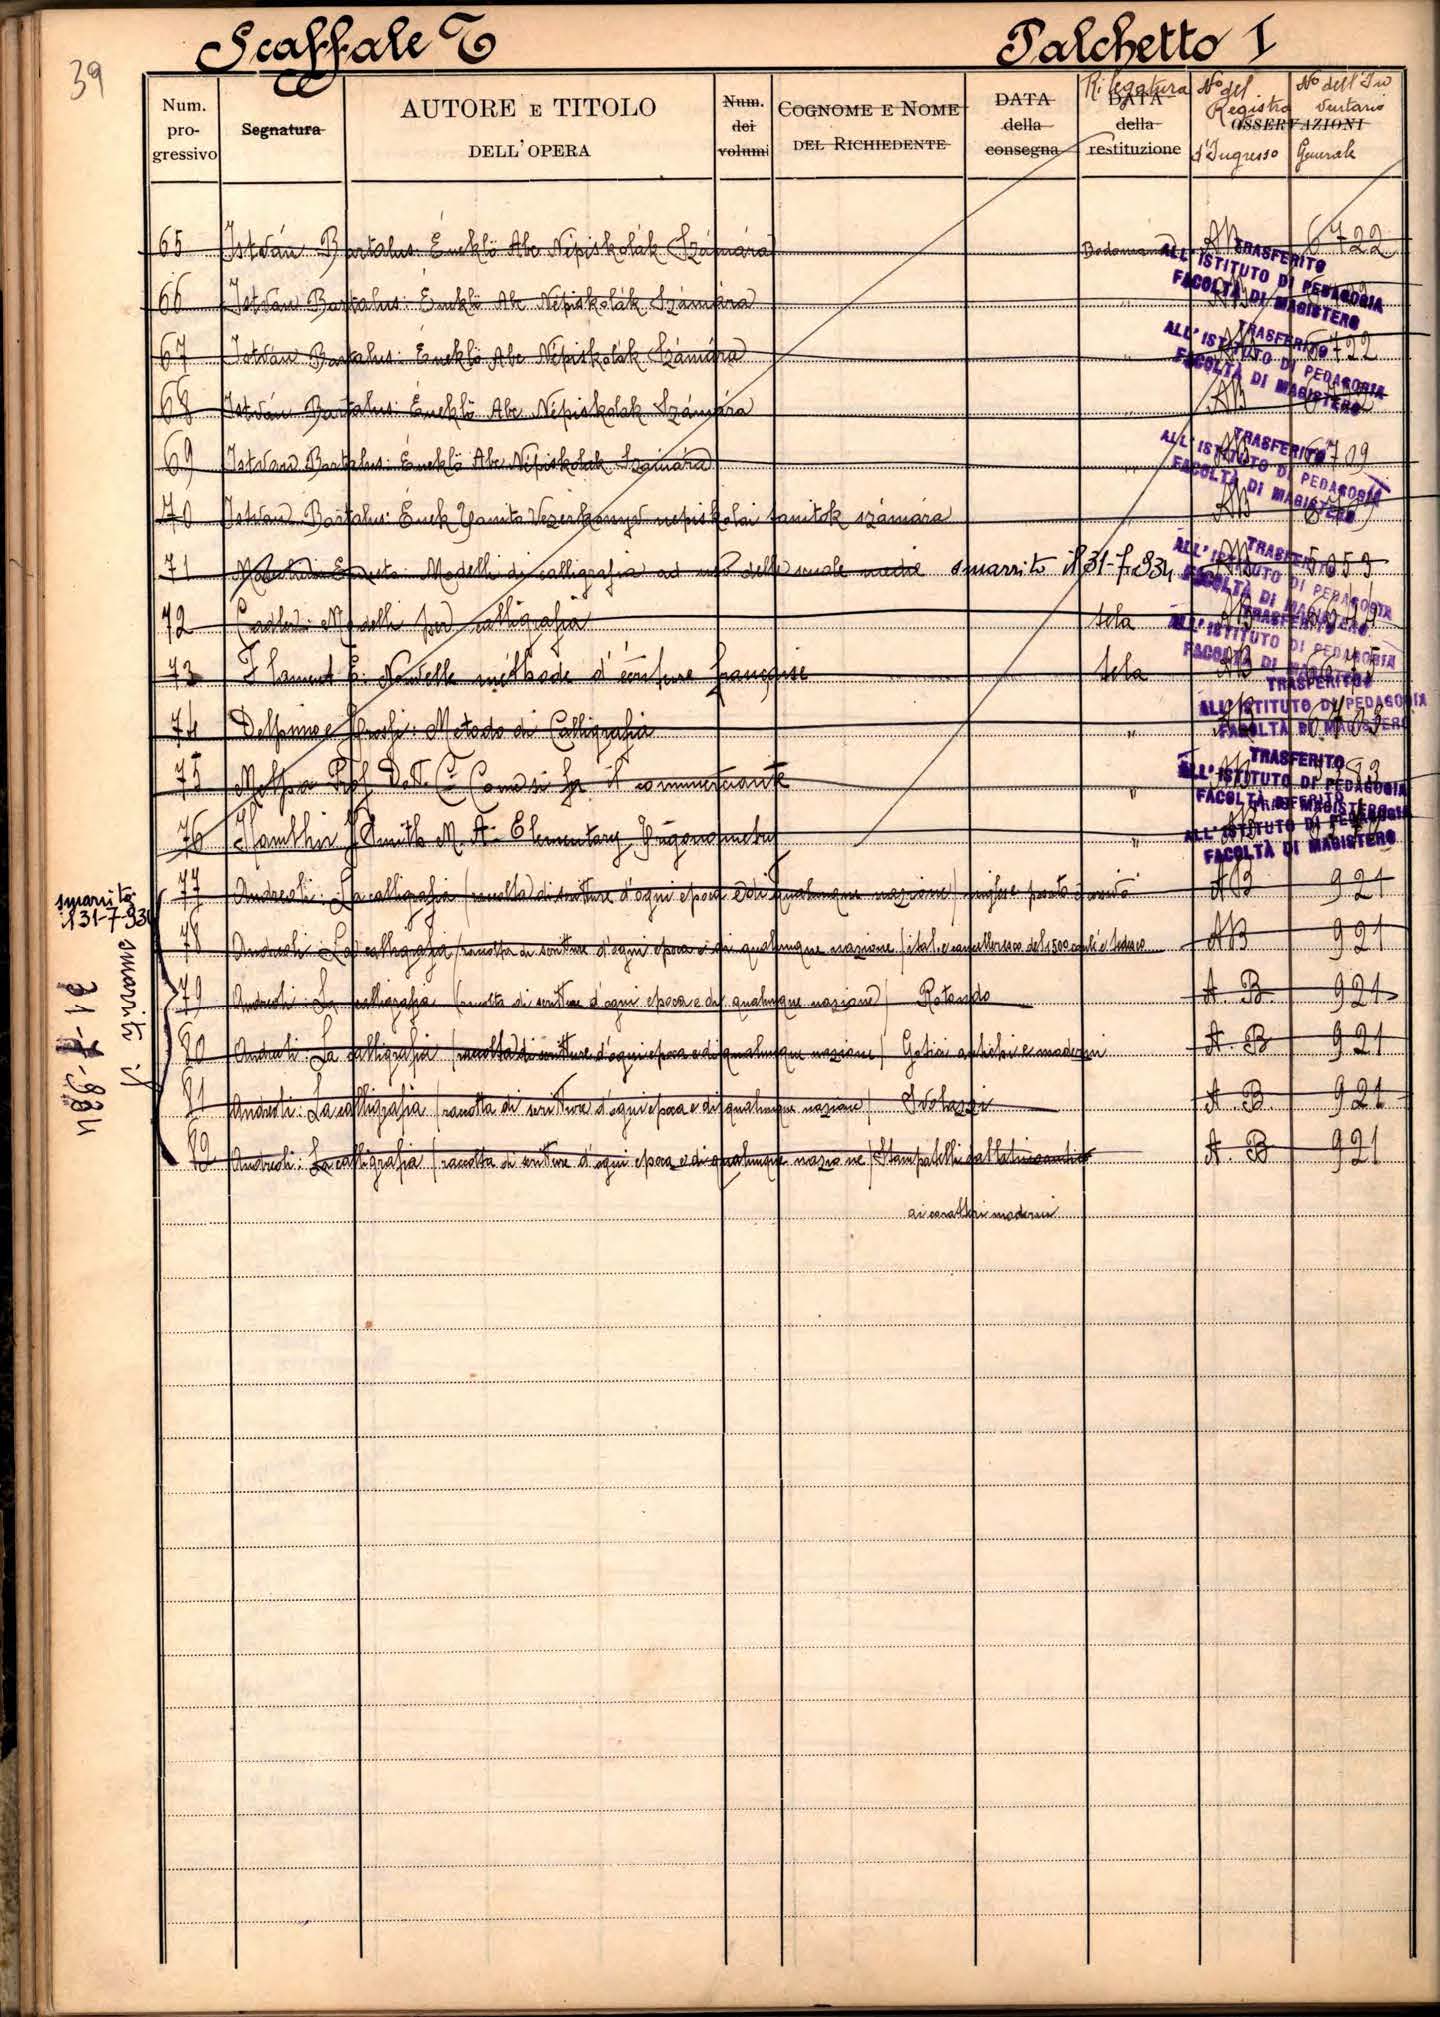 39
Scaffale T Palchetto I
Num. progressivo Segnatura AUTORE E TITOLO DELL'OPERA Num. dei volumi COGNOME E NOME DEL RICHIEDENTE DATA della consegna Rilegatura DATA della restituzione N° del Registro d'Ingresso OSSERVAZIONI N° dell'Inventario Generale
65 István Bartalus: Éneklö Abc Népiskolák Számára AB 6722
TRASFERITO
ALL'ISTITUTO DI PEDAGOGIA
FACOLTÀ DI MAGISTERO
66 István Bartalus: Éneklö Abc Népiskolák Számára " AB
67 István Bartalus: Éneklö Abc Népiskolák Számára " AB 6722
TRASFERITO
ALL'ISTITUTO DI PEDAGOGIA
FACOLTÀ DI MAGISTERO
68 István Bartalus: Éneklö Abc Népiskolák Számára " AB
69 István Bartalus: Éneklö Abc Népiskolák Számára " AB 6709
TRASFERITO
ALL'ISTITUTO DI PEDAGOGIA
FACOLTÀ DI MAGISTERO
70 István Bartalus: Ének népiskolai tanitok számára AB
71 Modelli di calligrafia ad uso delle scuole medie smarrito il 31-7-934 AB 5053
TRASFERITO
ALL'ISTITUTO DI PEDAGOGIA
FACOLTÀ DI MAGISTERO
72 Modelli per calligrafia tela AB
TRASFERITO
ALL'ISTITUTO DI PEDAGOGIA
FACOLTÀ DI MAGISTERO
73 Flament E: Nouvelle méthode d'écriture française tela AB
TRASFERITO
ALL'ISTITUTO DI PEDAGOGIA
FACOLTÀ DI MAGISTERO
74 Delpino e Metodo di Calligrafia "
75 Prof. Dott. C. il commerciante "
TRASFERITO
ALL'ISTITUTO DI PEDAGOGIA
FACOLTÀ DI MAGISTERO
76 Smith M. A. Elementary Trigonometry "
TRASFERITO
ALL'ISTITUTO DI PEDAGOGIA
FACOLTÀ DI MAGISTERO
77 Andreoli: La calligrafia (raccolta di scritture d'ogni epoca e di qualunque nazione) inglese AB 921
smarrito il 31-7-934
78 Andreoli: La calligrafia (raccolta di scritture d'ogni epoca e di qualunque nazione) ital. cancelleresco del 1500 e tedesco AB 921
smarriti il 31-7-934
79 Andreoli: La calligrafia (raccolta di scritture d'ogni epoca e di qualunque nazione) Rotondo A. B. 921
80 Andreoli: La calligrafia (raccolta di scritture d'ogni epoca e di qualunque nazione) Gotici antichi e moderni A. B. 921
81 Andreoli: La calligrafia (raccolta di scritture d'ogni epoca e di qualunque nazione) Svolazzi A. B. 921
82 Andreoli: La calligrafia (raccolta di scritture d'ogni epoca e di qualunque nazione) Stampatelli dal latino antico A. B. 921
ai caratteri moderni